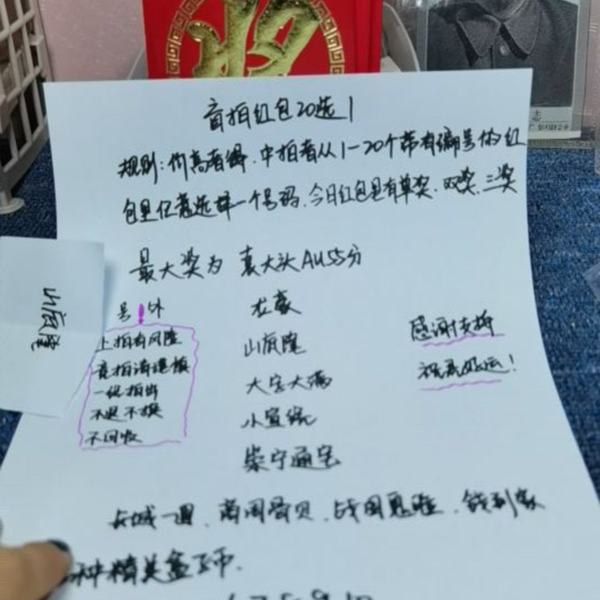 盲拍红包20选1
规则:价高者得.中拍者从1-20个带有编号的红
包里任意选择一个号码.今日红包里有单奖.双奖.三奖
最大奖为 袁大头AU55分
号外
龙豪
上拍有风险
竞拍请谨慎
一经拍出
不退不换
不回收
山炭隆
大宝大满
小宣统
崇宁通宝
感谢支持
祝君好运!
长城一圆.商周骨贝.战国鬼脸.
种精美盒子币.